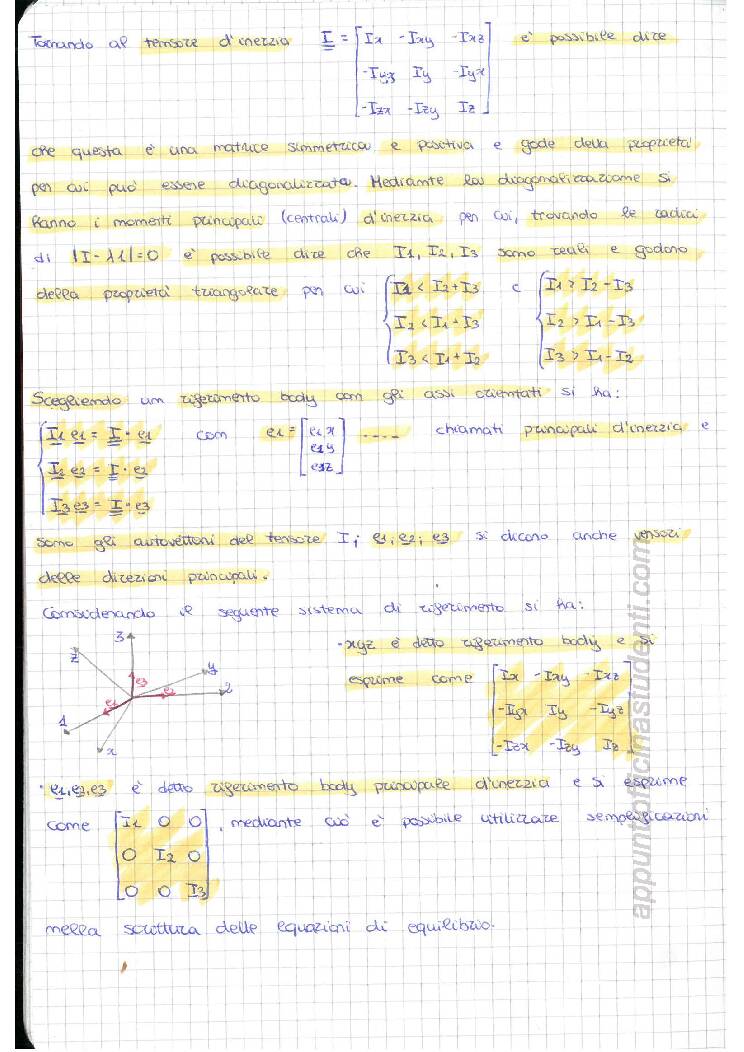 Tornando al tensore d'inerzia I = [Ix -Ixy -Ixz è possibile dire
-Iyz Iy -Iyx
-Izx -Izy Iz]
che questa è una matrice simmetrica e positiva e gode della proprietà
per cui può essere diagonalizzata. Mediante la diagonalizzazione si
hanno i momenti principali (centrali) d'inerzia per cui, trovando le radici
di |I-λ1|=0 è possibile dire che I1, I2, I3 sono reali e godono
della proprietà triangolare per cui { I1 < I2+I3 e { I1 > I2-I3
I2 < I1+I3 I2 > I1-I3
I3 < I1+I2 I3 > I1-I2
Scegliendo un riferimento body con gli assi orientati si ha:
{ I1 e1 = I · e1 con e1 = [e1x .... chiamati principali d'inerzia e
I2 e2 = I · e2 e1y
I3 e3 = I · e3 e1z]
sono gli autovettori del tensore I; e1; e2; e3 si dicono anche versori
delle direzioni principali.
Considerando il seguente sistema di riferimento si ha:
3
z
y
e3
e2
2
e1
1
x
-xyz è detto riferimento body e si
esprime come [Ix -Ixy -Ixz
-Iyx Iy -Iyz
-Izx -Izy Iz]
· e1,e2,e3 è detto riferimento body principale d'inerzia e si esprime
come [I1 0 0 , mediante ciò è possibile utilizzare semplificazioni
0 I2 0
0 0 I3]
nella scrittura delle equazioni di equilibrio.
appuntiofficinastudenti.com